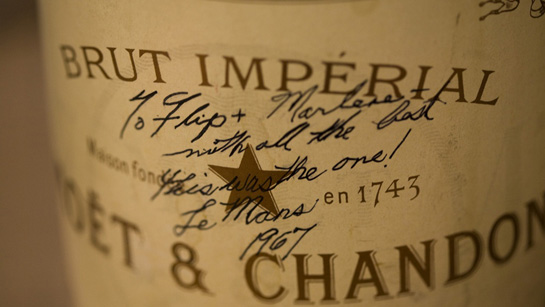 BRUT IMPÉRIAL
To Flip + Marlene
with all the best
this was the one!
Le Mans
1967
Maison fondée en 1743
MOËT & CHANDON